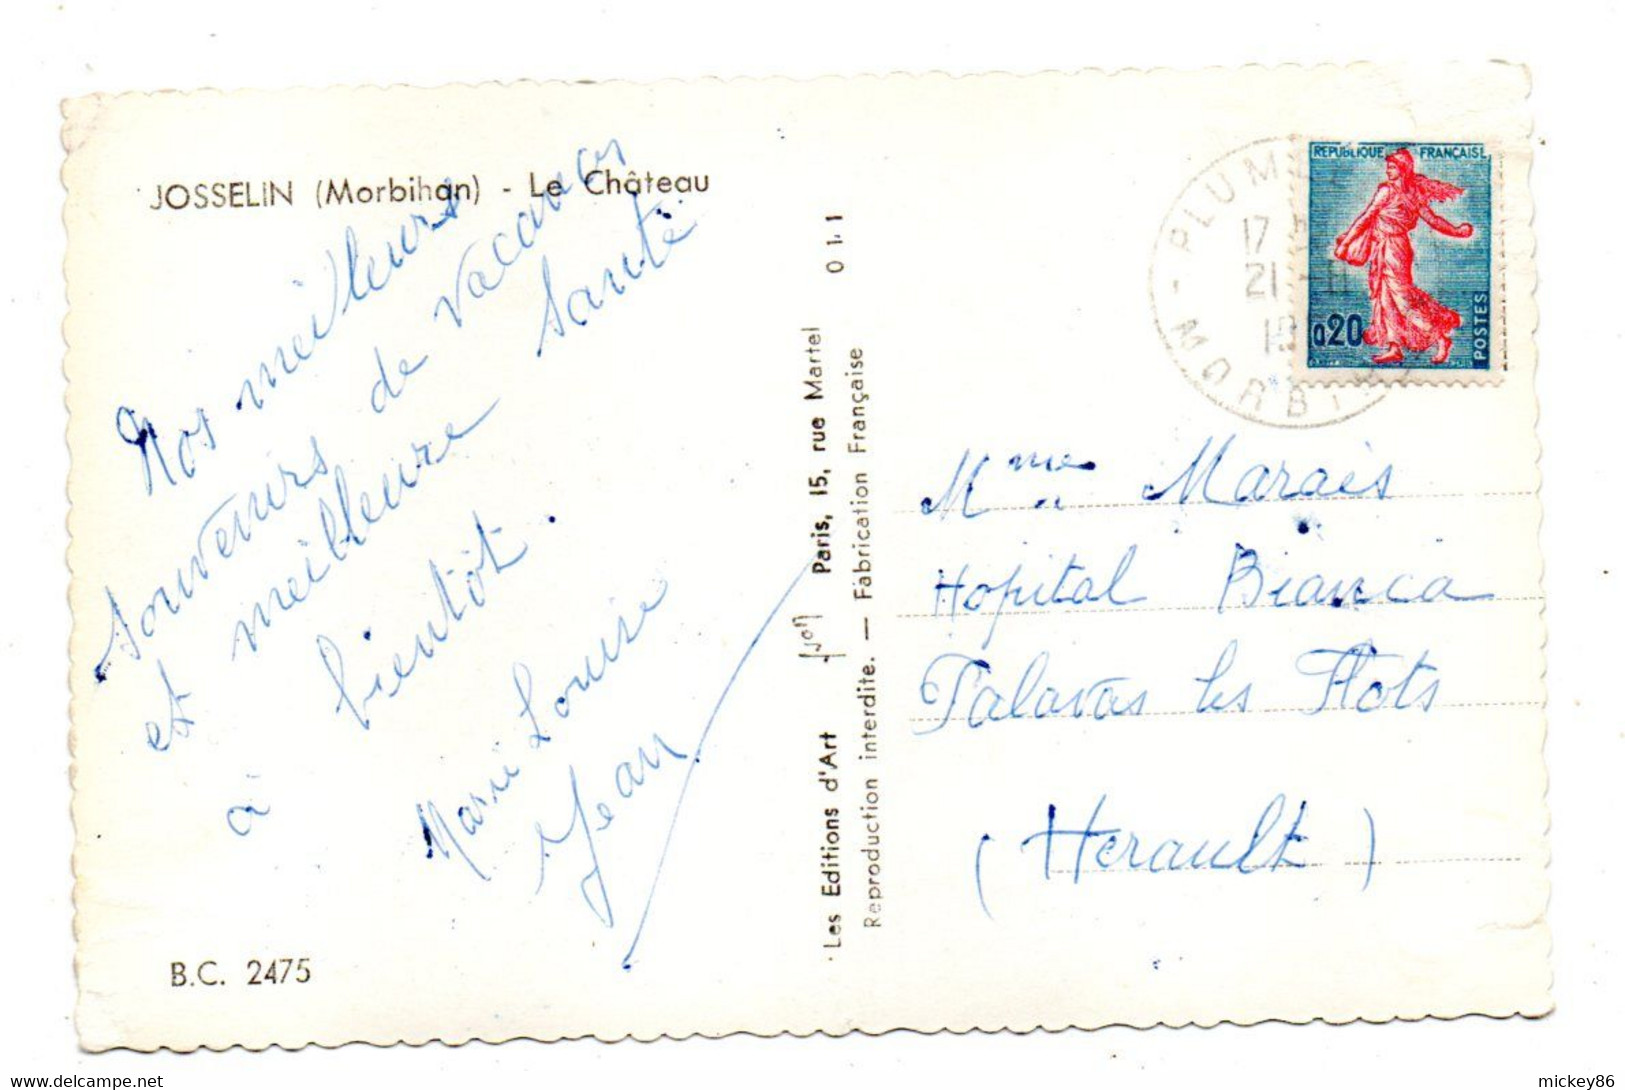 JOSSELIN (Morbihan) - Le Château
Nos meilleurs
souvenirs de vacances
et meilleure santé
à bientôt.
Marie Louise
Jean
B.C. 2475
Les Editions d'Art Yvon Paris, 15, rue Martel 011
Reproduction interdite. — Fabrication Française
MORBIHAN
17
21
REPUBLIQUE FRANÇAISE
0,20
POSTES
Mme Marais
Hopital Bianca
Palavas les Flots
(Herault)
mickey86
www.delcampe.net